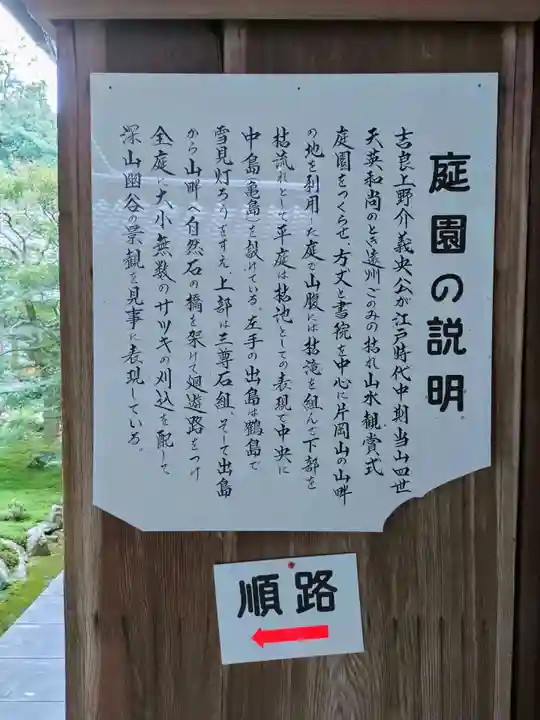 庭園の説明
吉良上野介義央公が江戸時代中期当山四世
天英和尚のとき遠州ごのみの枯れ山水観賞式
庭園をつくらせ、方丈と書院を中心に片岡山の山畔
の地を利用した庭で山腹には枯滝を組んで下部を
枯流れとして平庭は枯池としての表現で中央に
中島(亀島)を設けている。左手の出島は鶴島で
雪見灯ろうをすえ、上部は三尊石組、そして出島
から山畔へ自然石の橋を架けて廻遊路をつけ
全庭に大小無数のサツキの刈込を配して
深山幽谷の景観を見事に表現している。
順路